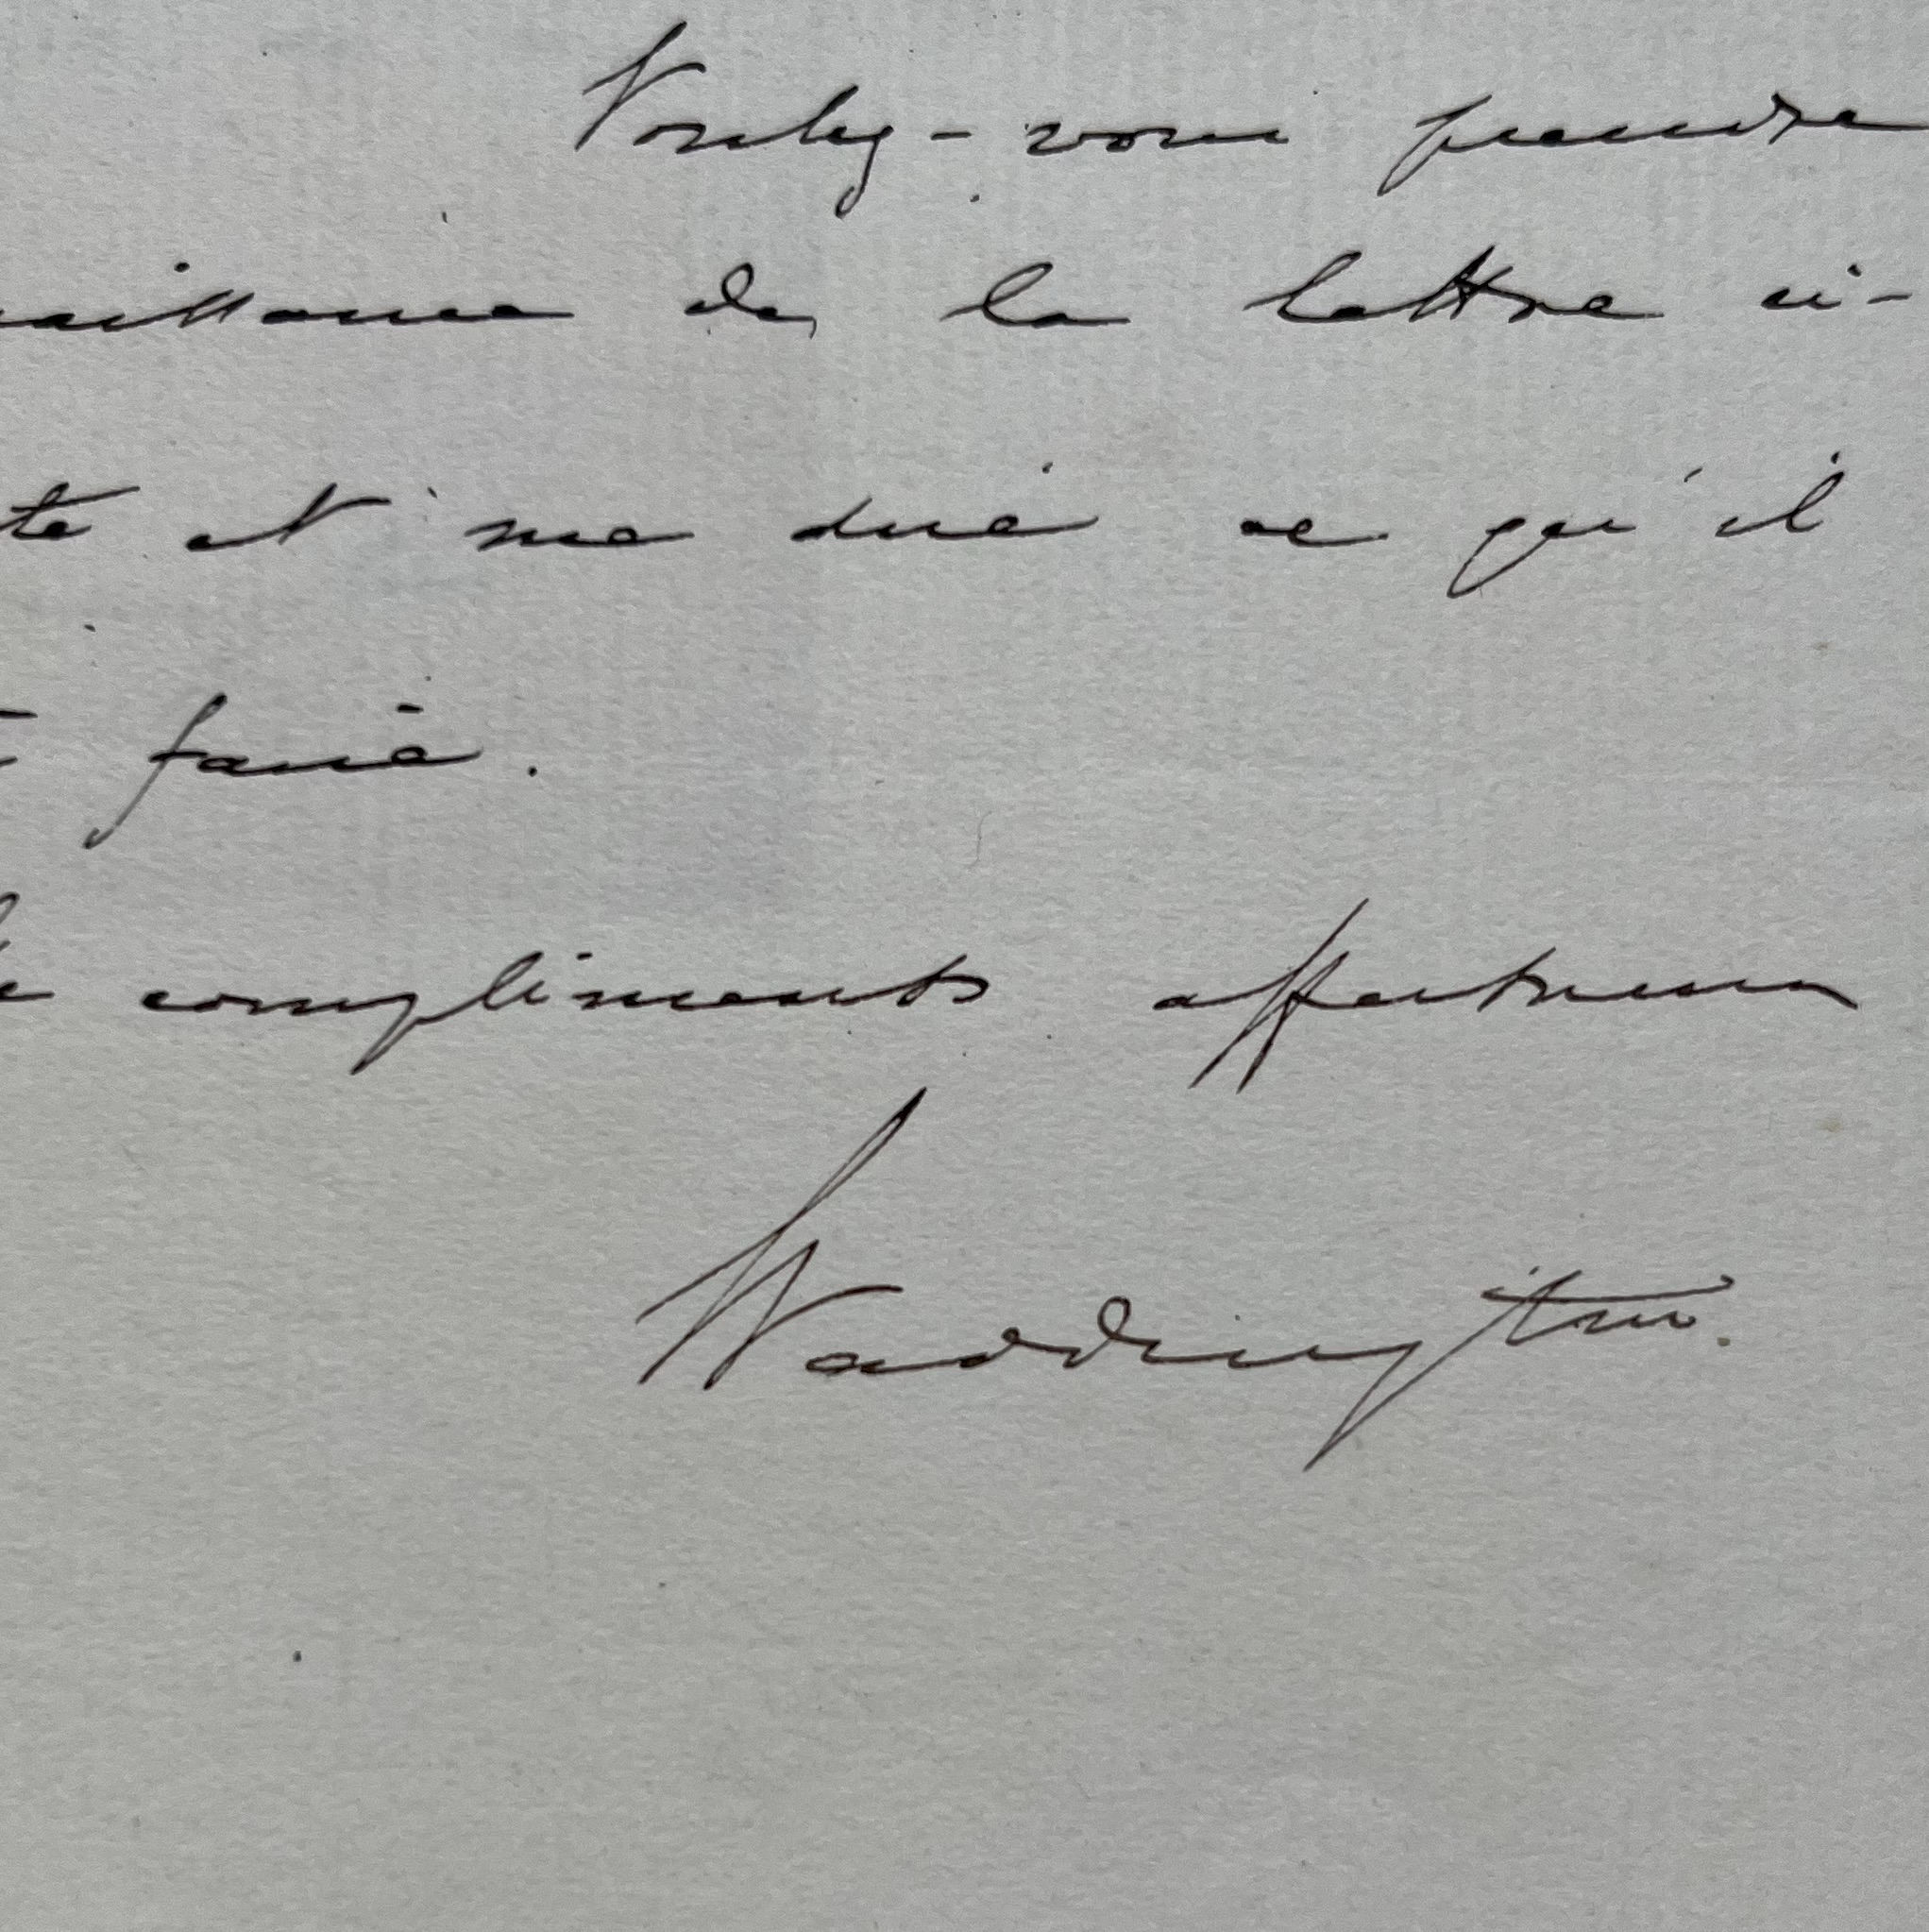 Voulez-vous prendre
naissance de la lettre ci-
te et me dire ce qu'il
faire.
compliments affectueux
Waddington.